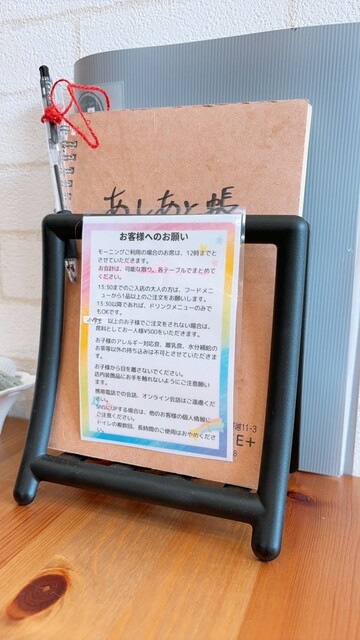 あしあと帳
お客様へのお願い
モーニングご利用の場合のお席は、12時までと
させていただきます。
お会計は、可能な限り、各テーブルでまとめて
ください。
13:30までのご入店の大人の方は、フードメニ
ューから1品以上のご注文をお願いします。
13:30以降であれば、ドリンクメニューのみで
もOKです。
以上のお子様でご注文をされない場合は、
席料としてお一人様¥500をいただきます。
お子様のアレルギー対応食、離乳食、水分補給の
お茶等以外の持ち込みは不可とさせていただきま
す。
お子様から目を離さないでください。
店内装飾品にお手を触れないようにご注意願い
ます。
携帯電話での会話、オンライン会話はご遠慮くだ
さい。
SNSにUPする場合は、他のお客様の個人情報に
ご注意ください。
トイレの複数回、長時間のご使用はおやめくださ
い。
11-3
E+
8